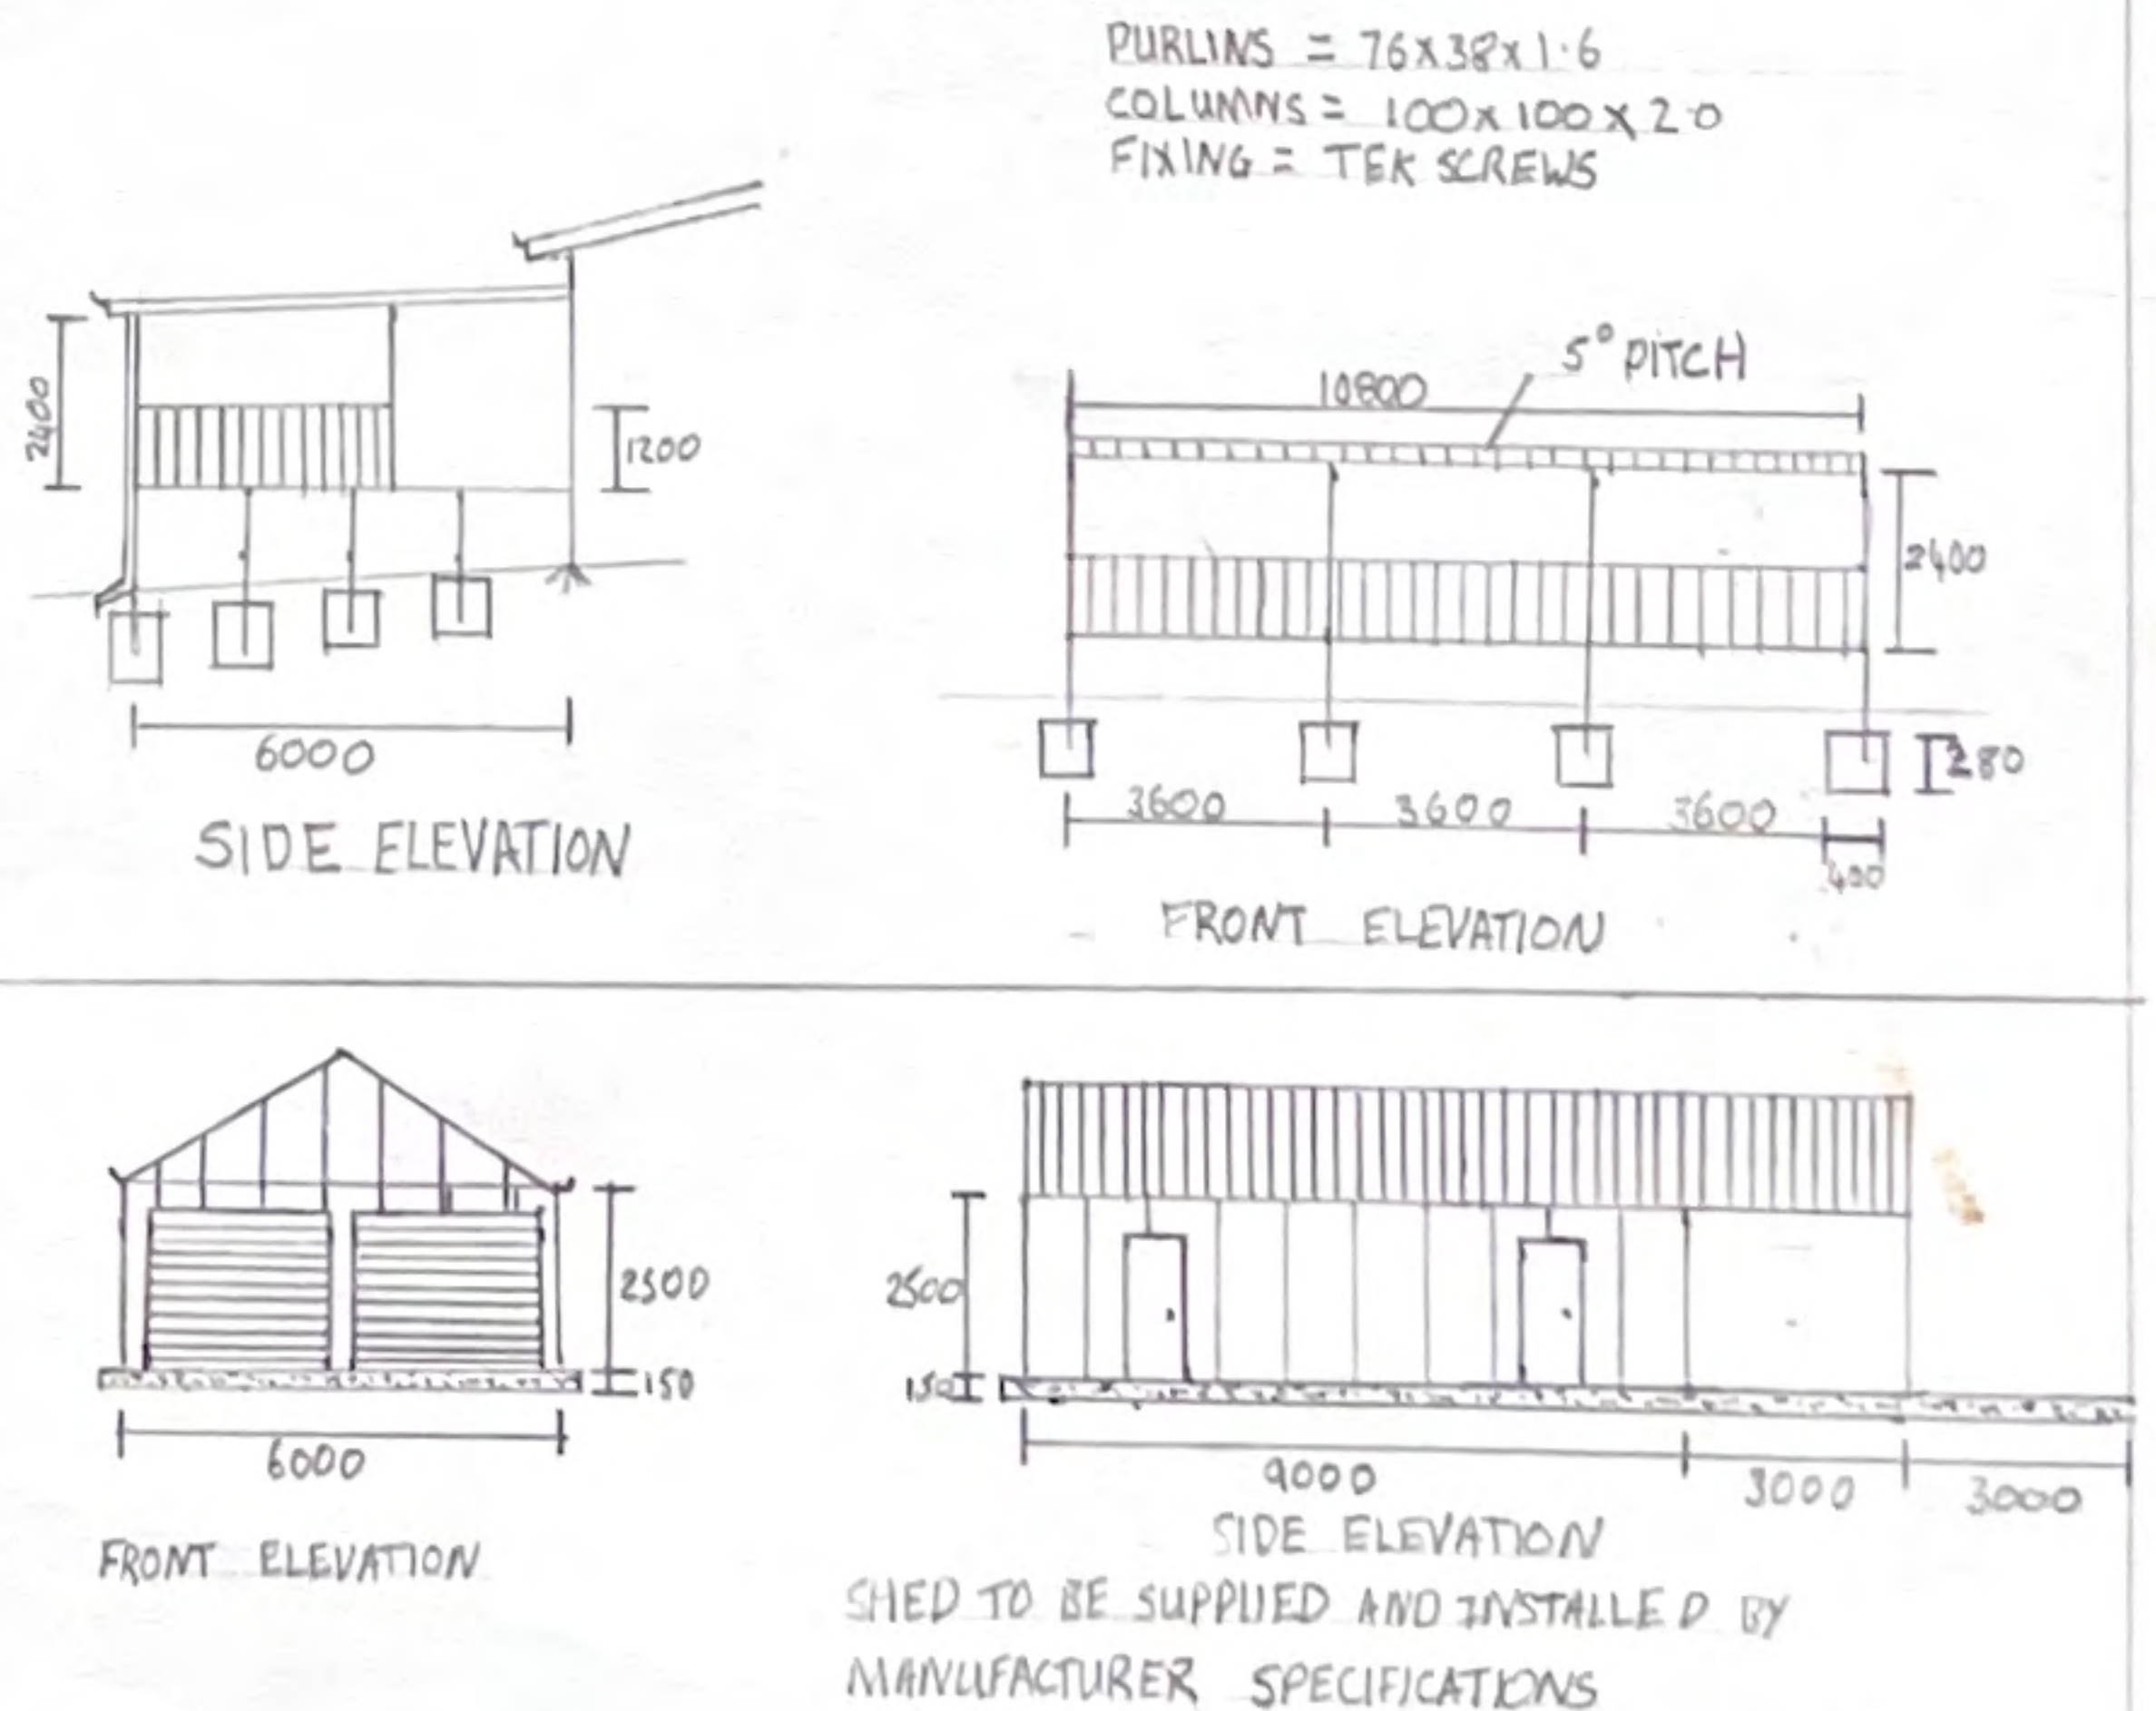 PURLINS = 76x38x1.6
COLUMNS = 100x100x2.0
FIXING = TEK SCREWS
2400
1200
6000
SIDE ELEVATION
5° PITCH
10800
2400
280
3600 3600 3600
400
FRONT ELEVATION
2500
150
6000
FRONT ELEVATION
2500
150
9000 3000 3000
SIDE ELEVATION
SHED TO BE SUPPLIED AND INSTALLED BY
MANUFACTURER SPECIFICATIONS